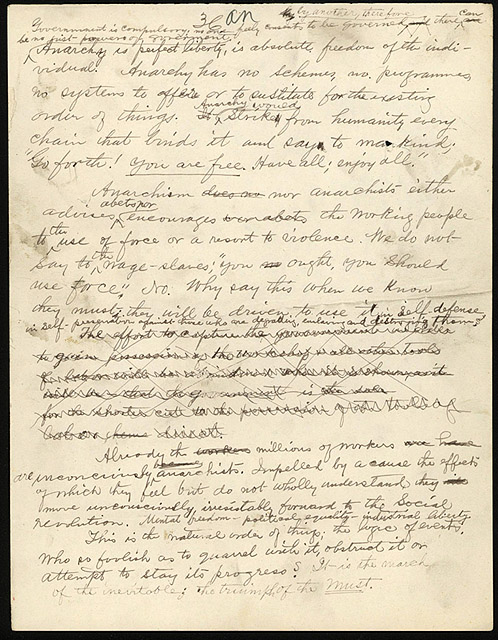 3 an
Government is compulsory; no one by another, therefore
fully consents to be governed, there can
be no just powers of government.
Anarchy is perfect liberty, is absolute freedom of the indi-
vidual. Anarchy has no schemes, no programmes
no systems to offer or to sustitute for the existing
order of things. Anarchy would
strike from humanity every
chain that binds it and say to mankind;
"Go forth! You are free. Have all; enjoy all."
Anarchism nor anarchists either
advises, abets nor
encourages the working people
to the use of force or a resort to violence. We do not
say to the wage-slaves; "you ought, you should
use force". No. Why say this when we know
they must; they will be driven to use it in self-defense,
in self-preservation against those who are degrading, enslaving and destroying them?
The effort to capture the
to gain possession of the workshop and other tools
of labor
labor
Already the millions of workers
are unconsciously anarchists. Impelled by a cause the effects
of which they feel but do not wholly understand, they
move unconsciously, irresistably forward to the Social
revolution. Mental freedom - political equality - industrial liberty.
This is the natural order of things: the logic of events.
Who so foolish as to quarrel with it, obstruct it or
attempt to stay its progress? It is the march
of the inevitable; the triumph of the Must.